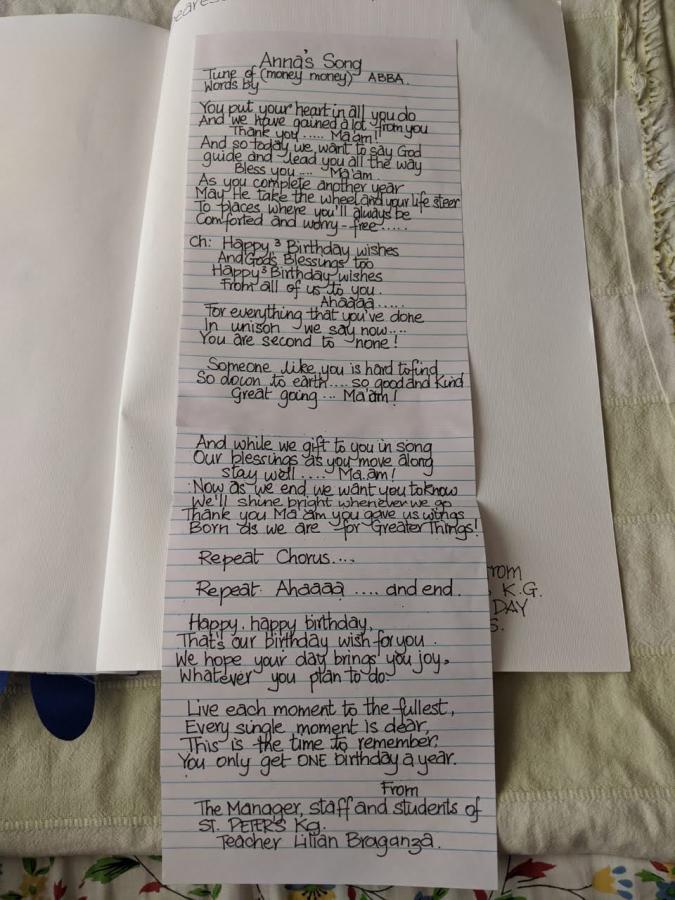 Anna's Song
Tune of (money money) ABBA.
Words by
You put your heart in all you do
And we have gained a lot from you
Thank you ..... Ma'am!
And so today we want to say God
guide and lead you all the way
Bless you .... Ma'am
As you complete another year
May He take the wheel and your life steer
To places where you'll always be
Comforted and worry-free.....
Ch: Happy³ Birthday wishes
And God's Blessings too
Happy³ Birthday wishes
From all of us to you.
Ahaaaa.....
For everything that you've done
In unison we say now....
You are second to none!
Someone like you is hard to find
So down to earth.... so good and kind
Great going... Ma'am!
And while we gift to you in song
Our blessings as you move along
stay well..... Ma.am!
Now as we end we want you to know
We'll shine bright whenever we go
Thank you Ma'am you gave us wings
Born as we are for Greater Things!
Repeat Chorus....
Repeat Ahaaaa .... and end.
Happy, happy birthday,
That's our birthday wish for you.
We hope your day brings you joy,
Whatever you plan to do
Live each moment to the fullest,
Every single moment is dear,
This is the time to remember,
You only get ONE birthday a year.
From
The Manager, staff and students of
ST. PETER'S Kg.
Teacher Lilian Braganza.
rom
K.G.
DAY
S.